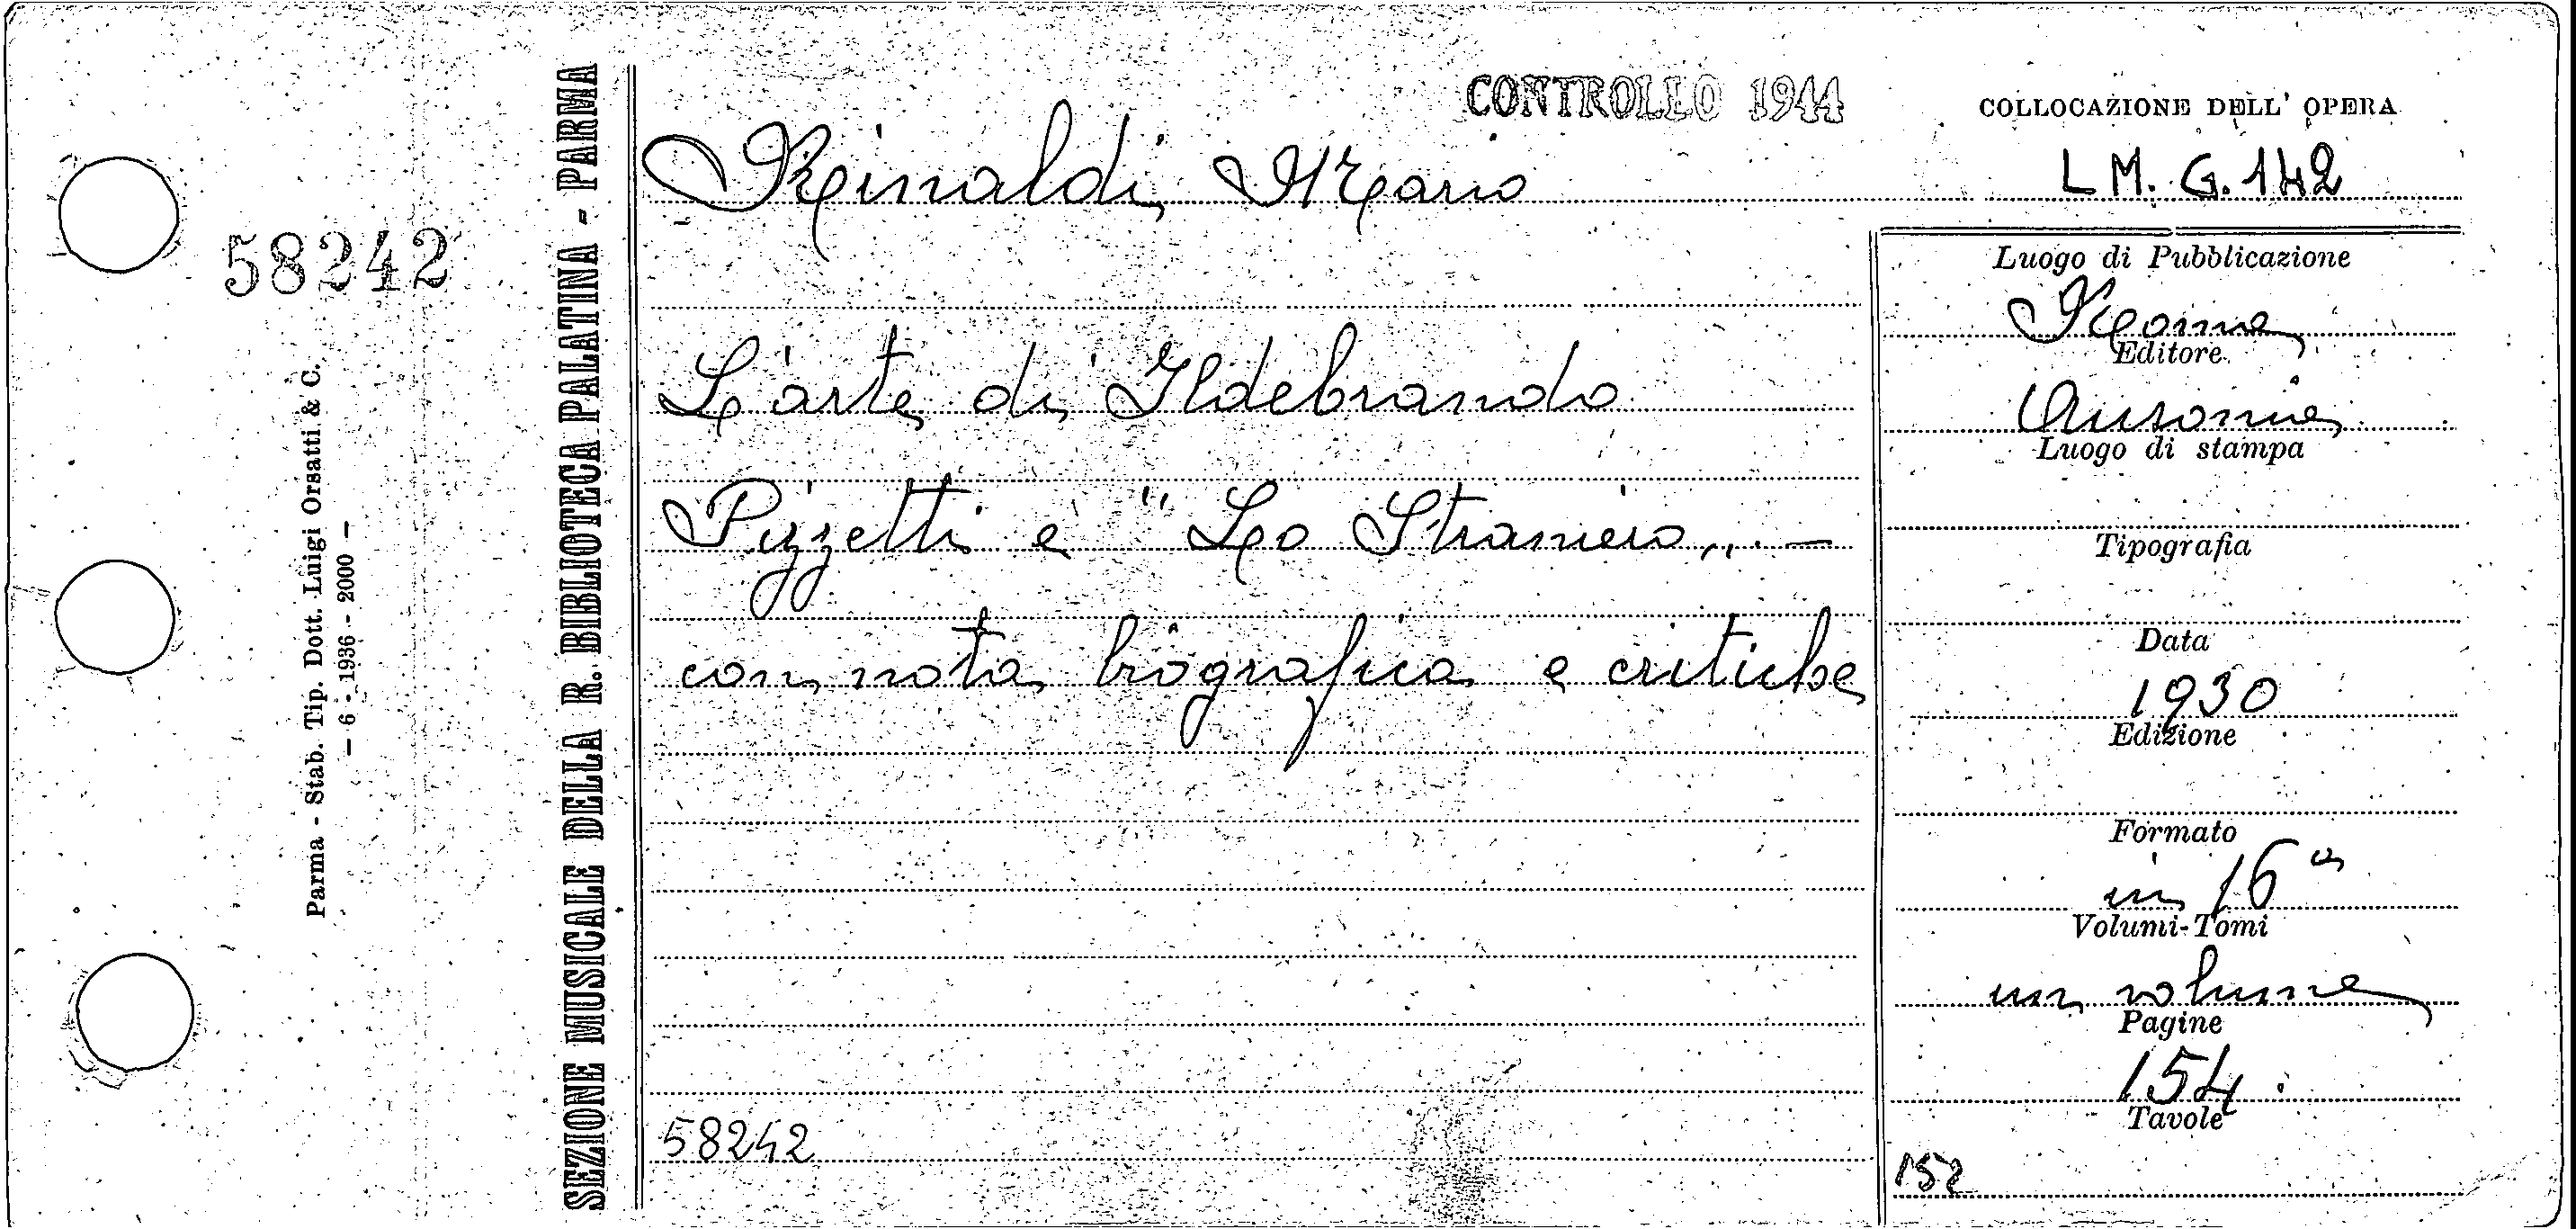 CONTROLLO 1944
COLLOCAZIONE DELL' OPERA
L M. G. 142
Rinaldi, Mario
58242
Parma - Stab. Tip. Dott. Luigi Orsatti & C.
— 6 - 1936 - 2000 —
SEZIONE MUSICALE DELLA R. BIBLIOTECA PALATINA - PARMA
L'arte di Ildebrando
Pizzetti e "Lo Straniero„ . —
con nota biografica e critiche
58242
Luogo di Pubblicazione
Roma
Editore
Ausonia
Luogo di stampa
Tipografia
Data
1930
Edizione
Formato
in 16°
Volumi-Tomi
un volume
Pagine
154
Tavole
152